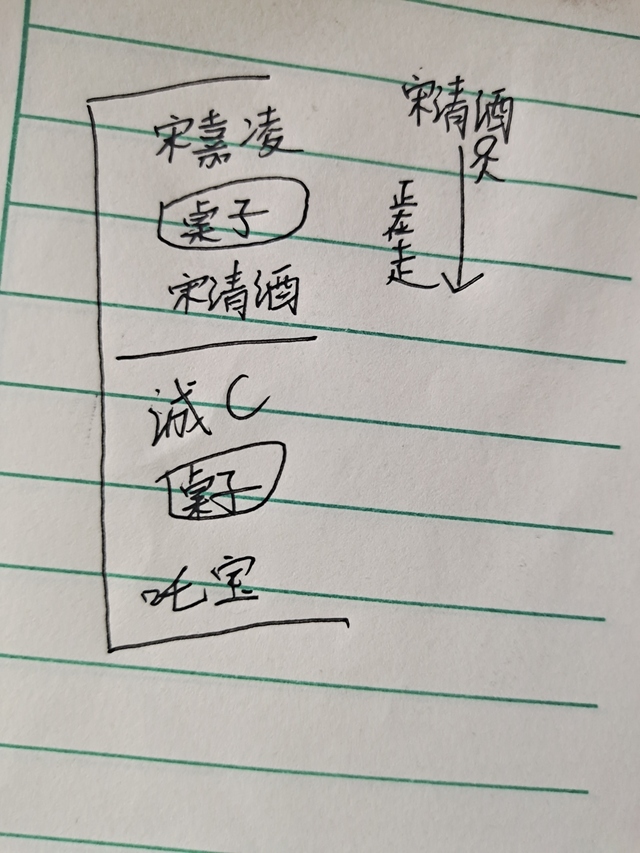 宋嘉凌
桌子
宋清酒
诚C
桌子
吒宝
宋清酒
正在走